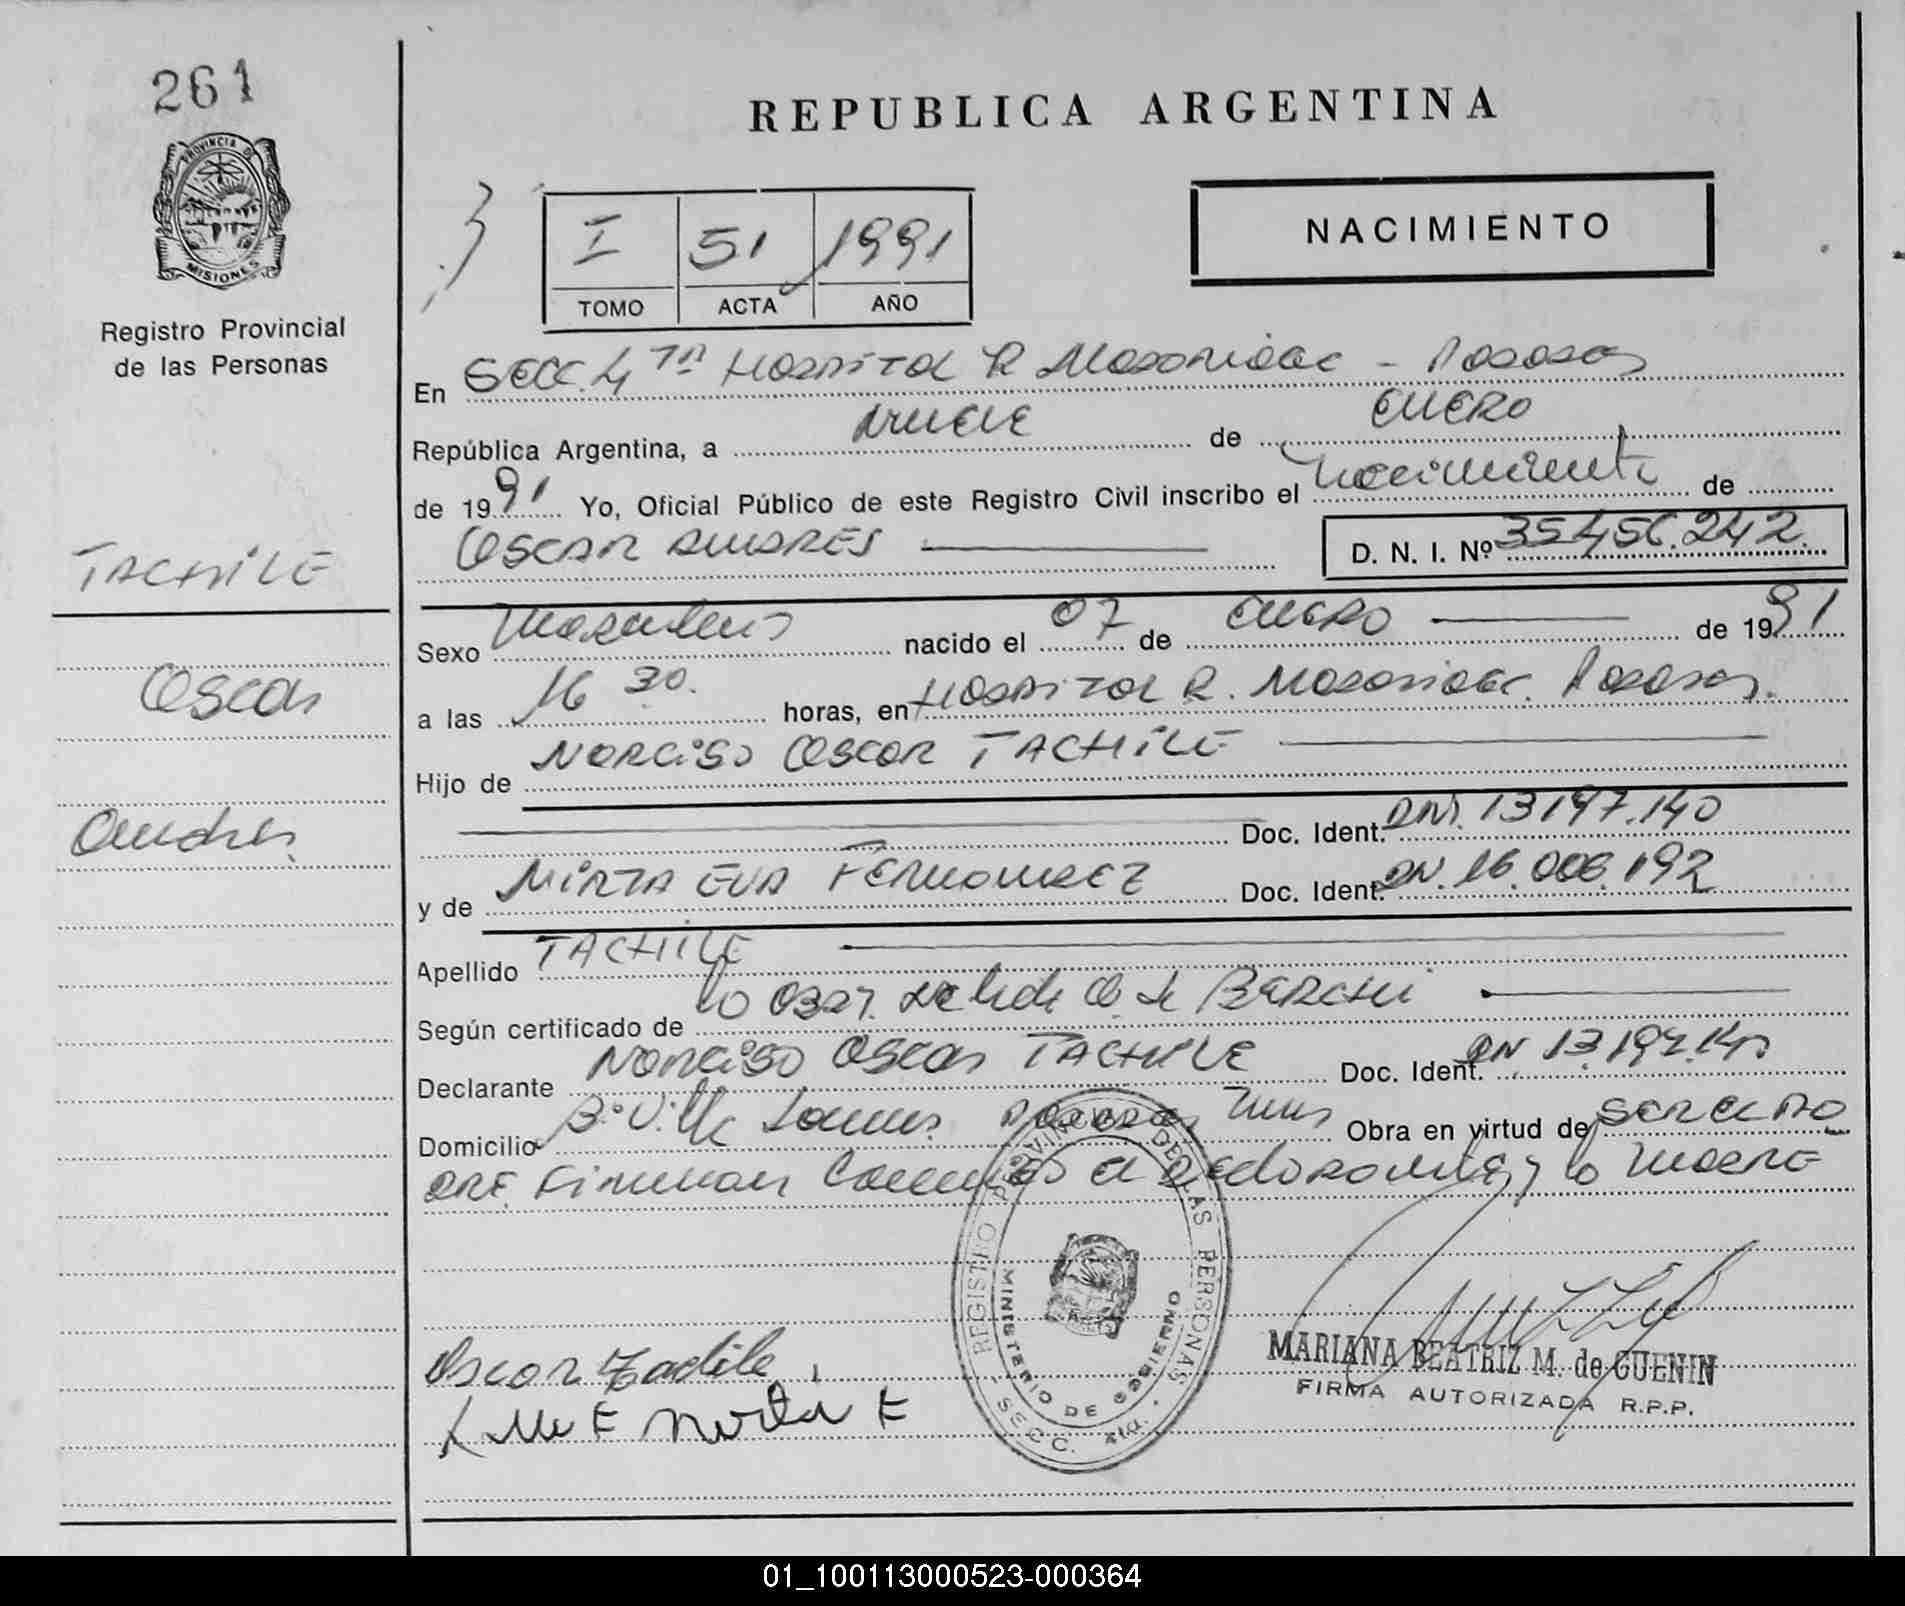 261
REPUBLICA ARGENTINA
PROVINCIA DE MISIONES
Registro Provincial
de las Personas
I 51 1991
TOMO ACTA AÑO
NACIMIENTO
En SECC. 4 TA HOSPITAL R Madariaga - Posadas
República Argentina, a nueve de ENERO
de 1991 Yo, Oficial Público de este Registro Civil inscribo el nacimiento de
OSCAR ANDRES D. N. I. Nº 35.456.242.
TACHILE
Oscar
Andres.
Sexo Masculino nacido el 07 de ENERO de 1991
a las 16 30. horas, en HOSPITAL R. Madariaga. Posadas.
Hijo de NARCISO OSCAR TACHILE
Doc. Ident. DNI. 13.197.140
y de MIRTA EVA FERNANDEZ Doc. Ident. DN. 16.006.192
Apellido TACHILE
Según certificado de la Obst. Nelida O. de
Declarante NARCISO OSCAR TACHILE Doc. Ident. DN 13.197.140
Domicilio Bº Villa Posadas Mnes Obra en virtud de ser el PADRE
Firman el declarante y la MADRE
Oscar Tachile
Mirta E
REGISTRO PROVINCIAL DE LAS PERSONAS
MINISTERIO DE GOBIERNO
- SECC. 4ta. -
MARIANA BEATRIZ M. de GUENIN
FIRMA AUTORIZADA R.P.P.
01_100113000523-000364